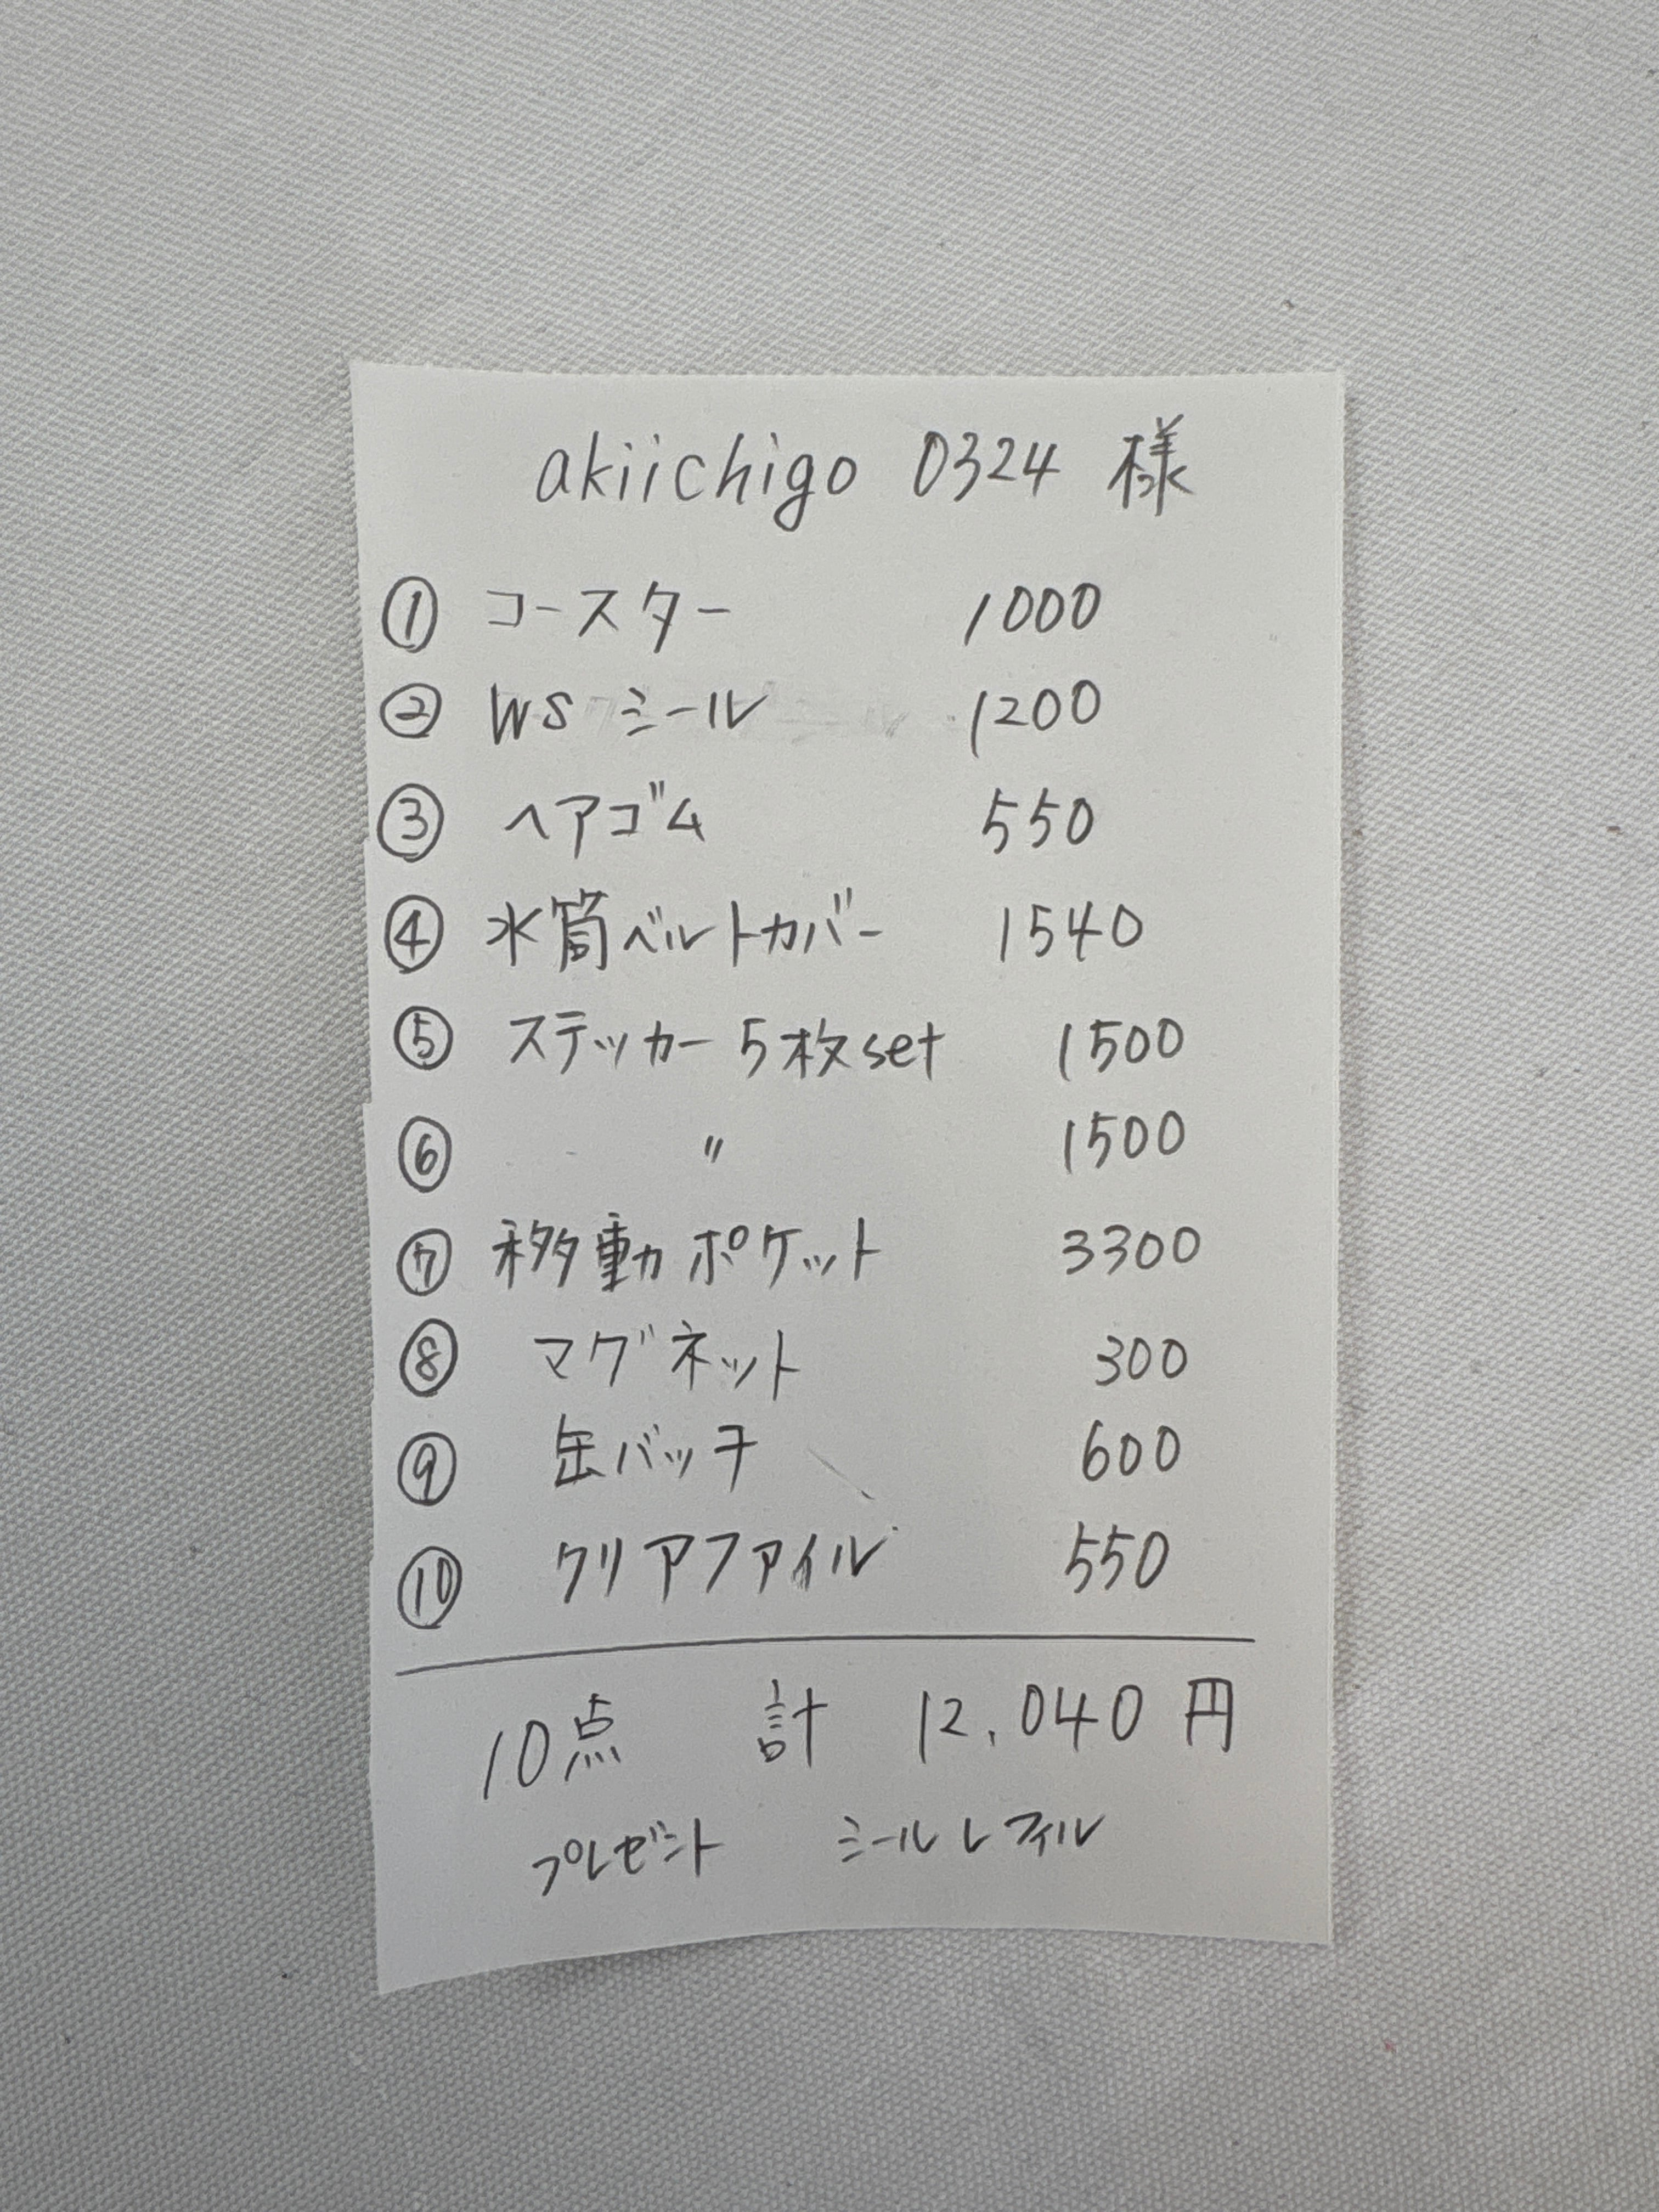 akiichigo 0324 様
① コースター 1000
② WS シール 1200
③ ヘアゴム 550
④ 水筒ベルトカバー 1540
⑤ ステッカー 5枚set 1500
⑥ 〃 1500
⑦ 移動ポケット 3300
⑧ マグネット 300
⑨ 缶バッチ 600
⑩ クリアファイル 550
10点 計 12,040円
プレゼント シールレフィル